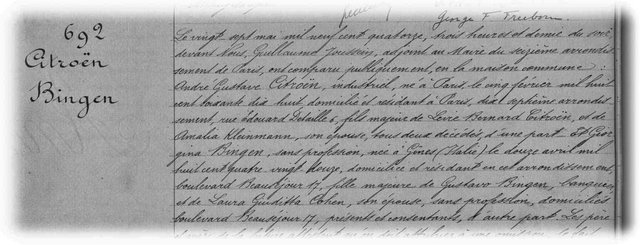 Georges F. Treborn
692
Citroën
Bingen
Le vingt sept mai mil neuf cent quatorze, trois heures et demie du soir
devant Nous, Guillaume Joussein, adjoint au Maire du seizième arrondis-
sement de Paris, ont comparu publiquement, en la maison commune :
André Gustave Citroën, industriel, né à Paris le cinq février mil huit
cent soixante dix huit domicilié et résidant à Paris, dix septième arrondis-
sement, rue édouard Detaille 6, fils majeur de Levie Bernard Citroën, et de
Amalia Kleinmann, son épouse, tous deux décédés d'une part. Et Gior-
gina Bingen, sans profession, née à Gênes (Italie) le douze avril mil
huit cent quatre vingt douze, domiciliée et résidant en cet arrondissement
boulevard Beauséjour 17, fille majeure de Gustavo Bingen, banquier,
et de Laura Giuditta Cohen, son épouse, sans profession, domiciliés
boulevard Beauséjour 17, présents et consentants, d'autre part. Les père